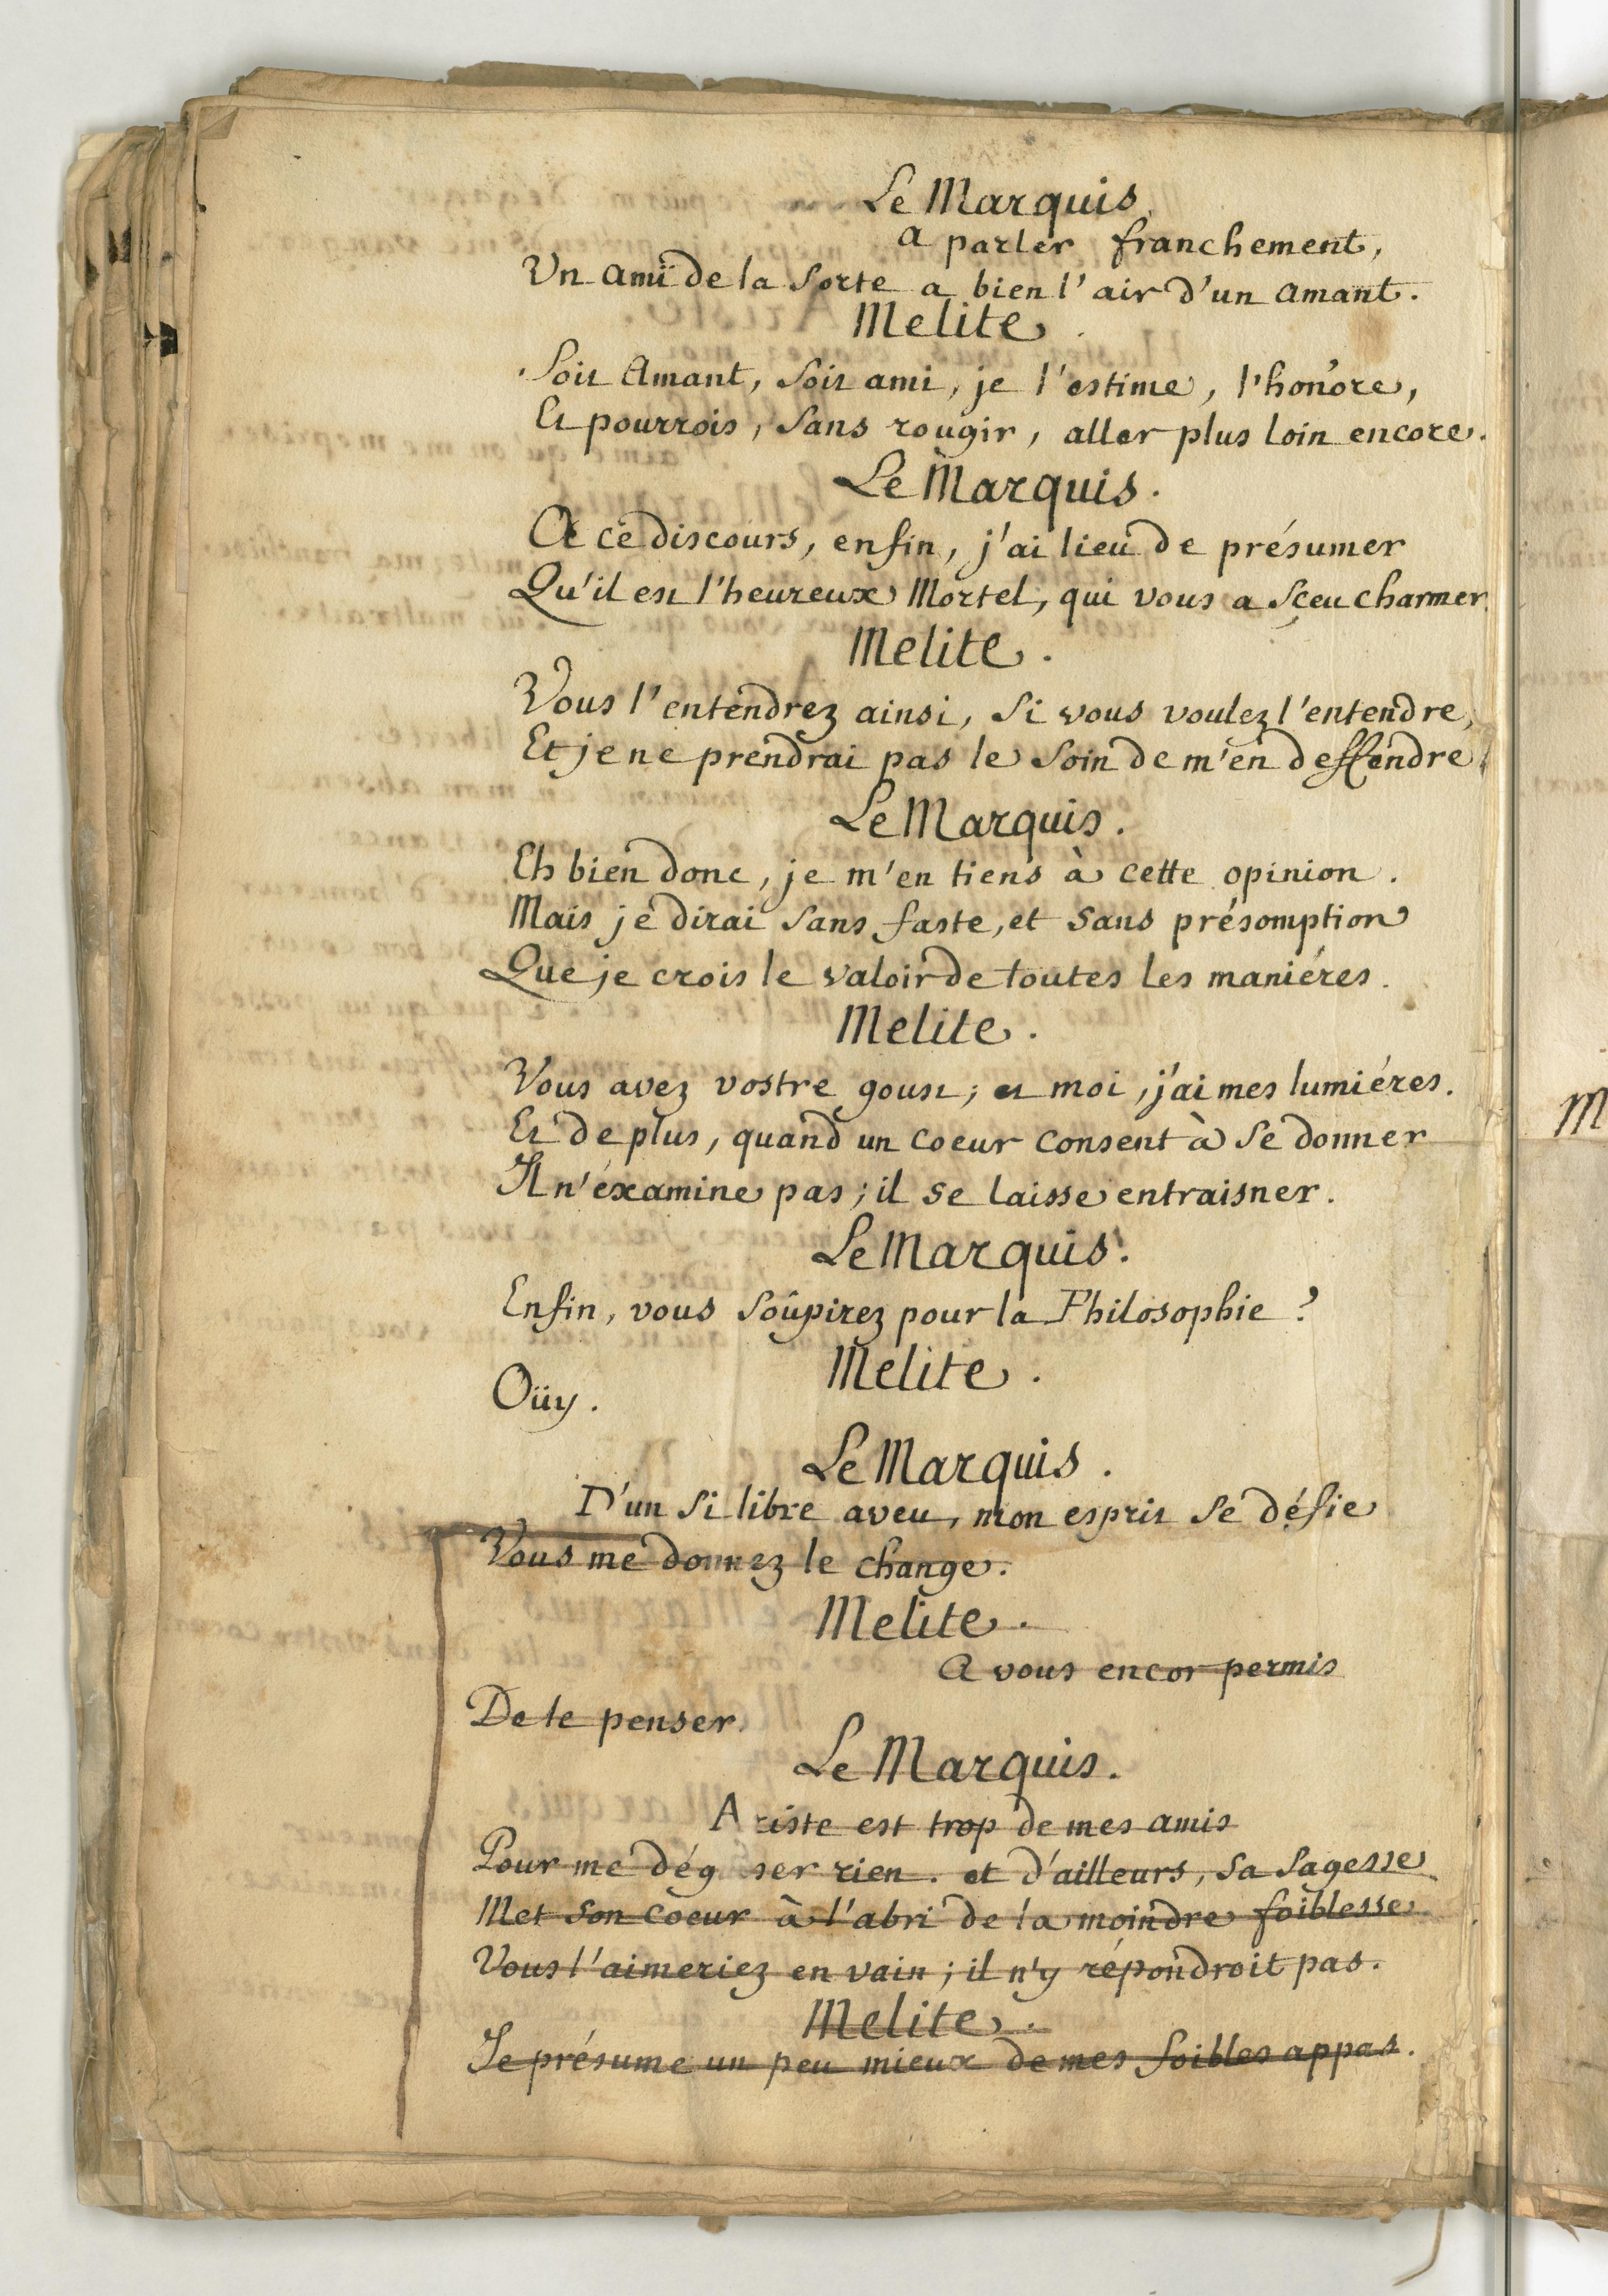 Le Marquis.
a parler franchement,
Un ami de la sorte a bien l'air d'un amant.
Melite.
Soit Amant, soit ami, je l'estime, l'honore,
Et pourrois, sans rougir, aller plus loin encore.
Le Marquis.
A ce discours, enfin, j'ai lieu de présumer
Qu'il est l'heureux Mortel, qui vous a sçeu charmer
Melite.
Vous l'entendrez ainsi, si vous voulez l'entendre,
Et je ne prendrai pas le soin de m'en deffendre.
Le Marquis.
Eh bien donc, je m'en tiens à cette opinion.
Mais je dirai sans faste, et sans présomption
Que je crois le valoir de toutes les maniéres.
Melite.
Vous avez vostre goust; et moi, j'ai mes lumiéres.
Et de plus, quand un coeur consent à se donner
Il n'éxamine pas; il se laisse entraisner.
Le Marquis.
Enfin, vous soûpirez pour la Philosophie?
Melite.
Oüy.
Le Marquis.
D'un si libre aveu, mon esprit se défie
Vous me donnez le change.
Melite.
A vous encor permis
De le penser.
Le Marquis.
Ariste est trop de mes amis
Pour me dég ser rien. et d'ailleurs, sa sagesse
Met son coeur à l'abri de la moindre foiblesse
Vous l'aimeriez en vain; il n'y répondroit pas.
Melite.
Je présume un peu mieux de mes foibles appas.
M